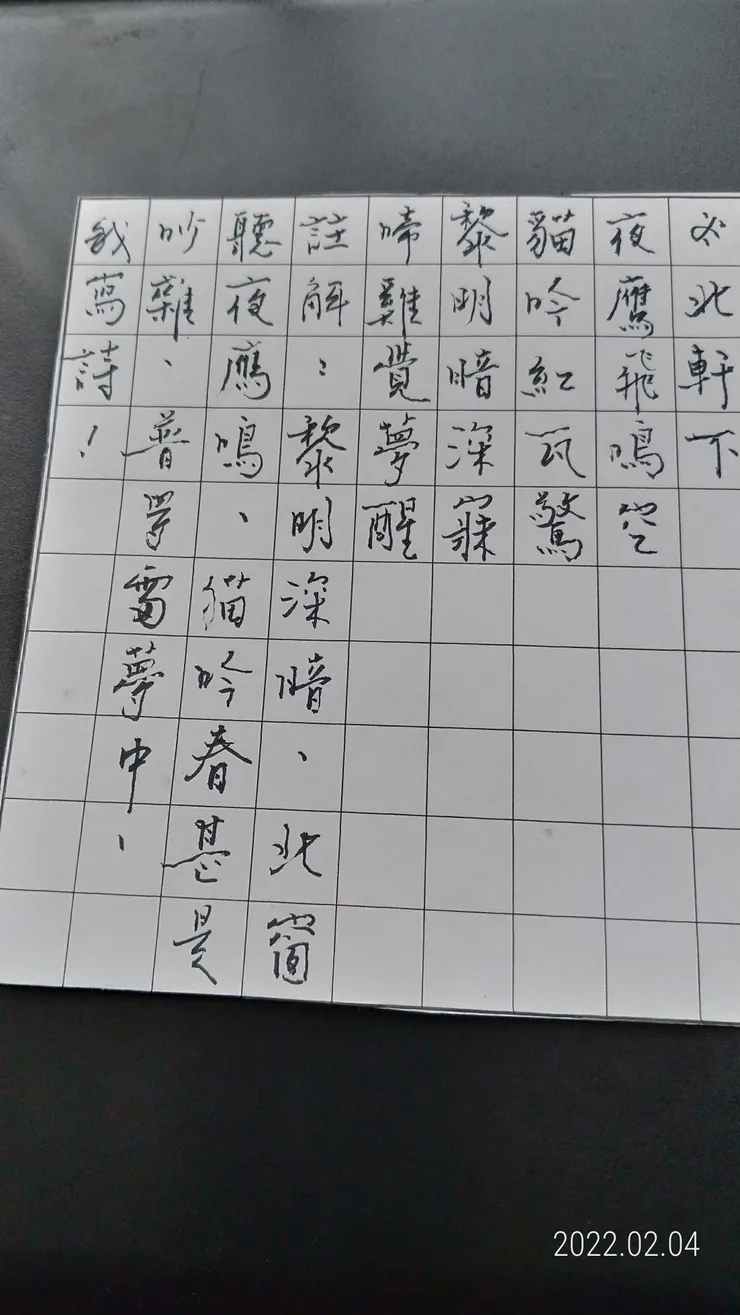 北軒下
夜鷹飛鳴空
貓吟紅瓦驚
黎明暗深寐
啼雞覺夢醒
註解：黎明深暗、北窗
聽夜鷹鳴、貓吟春甚是
吵雜、普雷夢中、
我寫詩！
2022.02.04